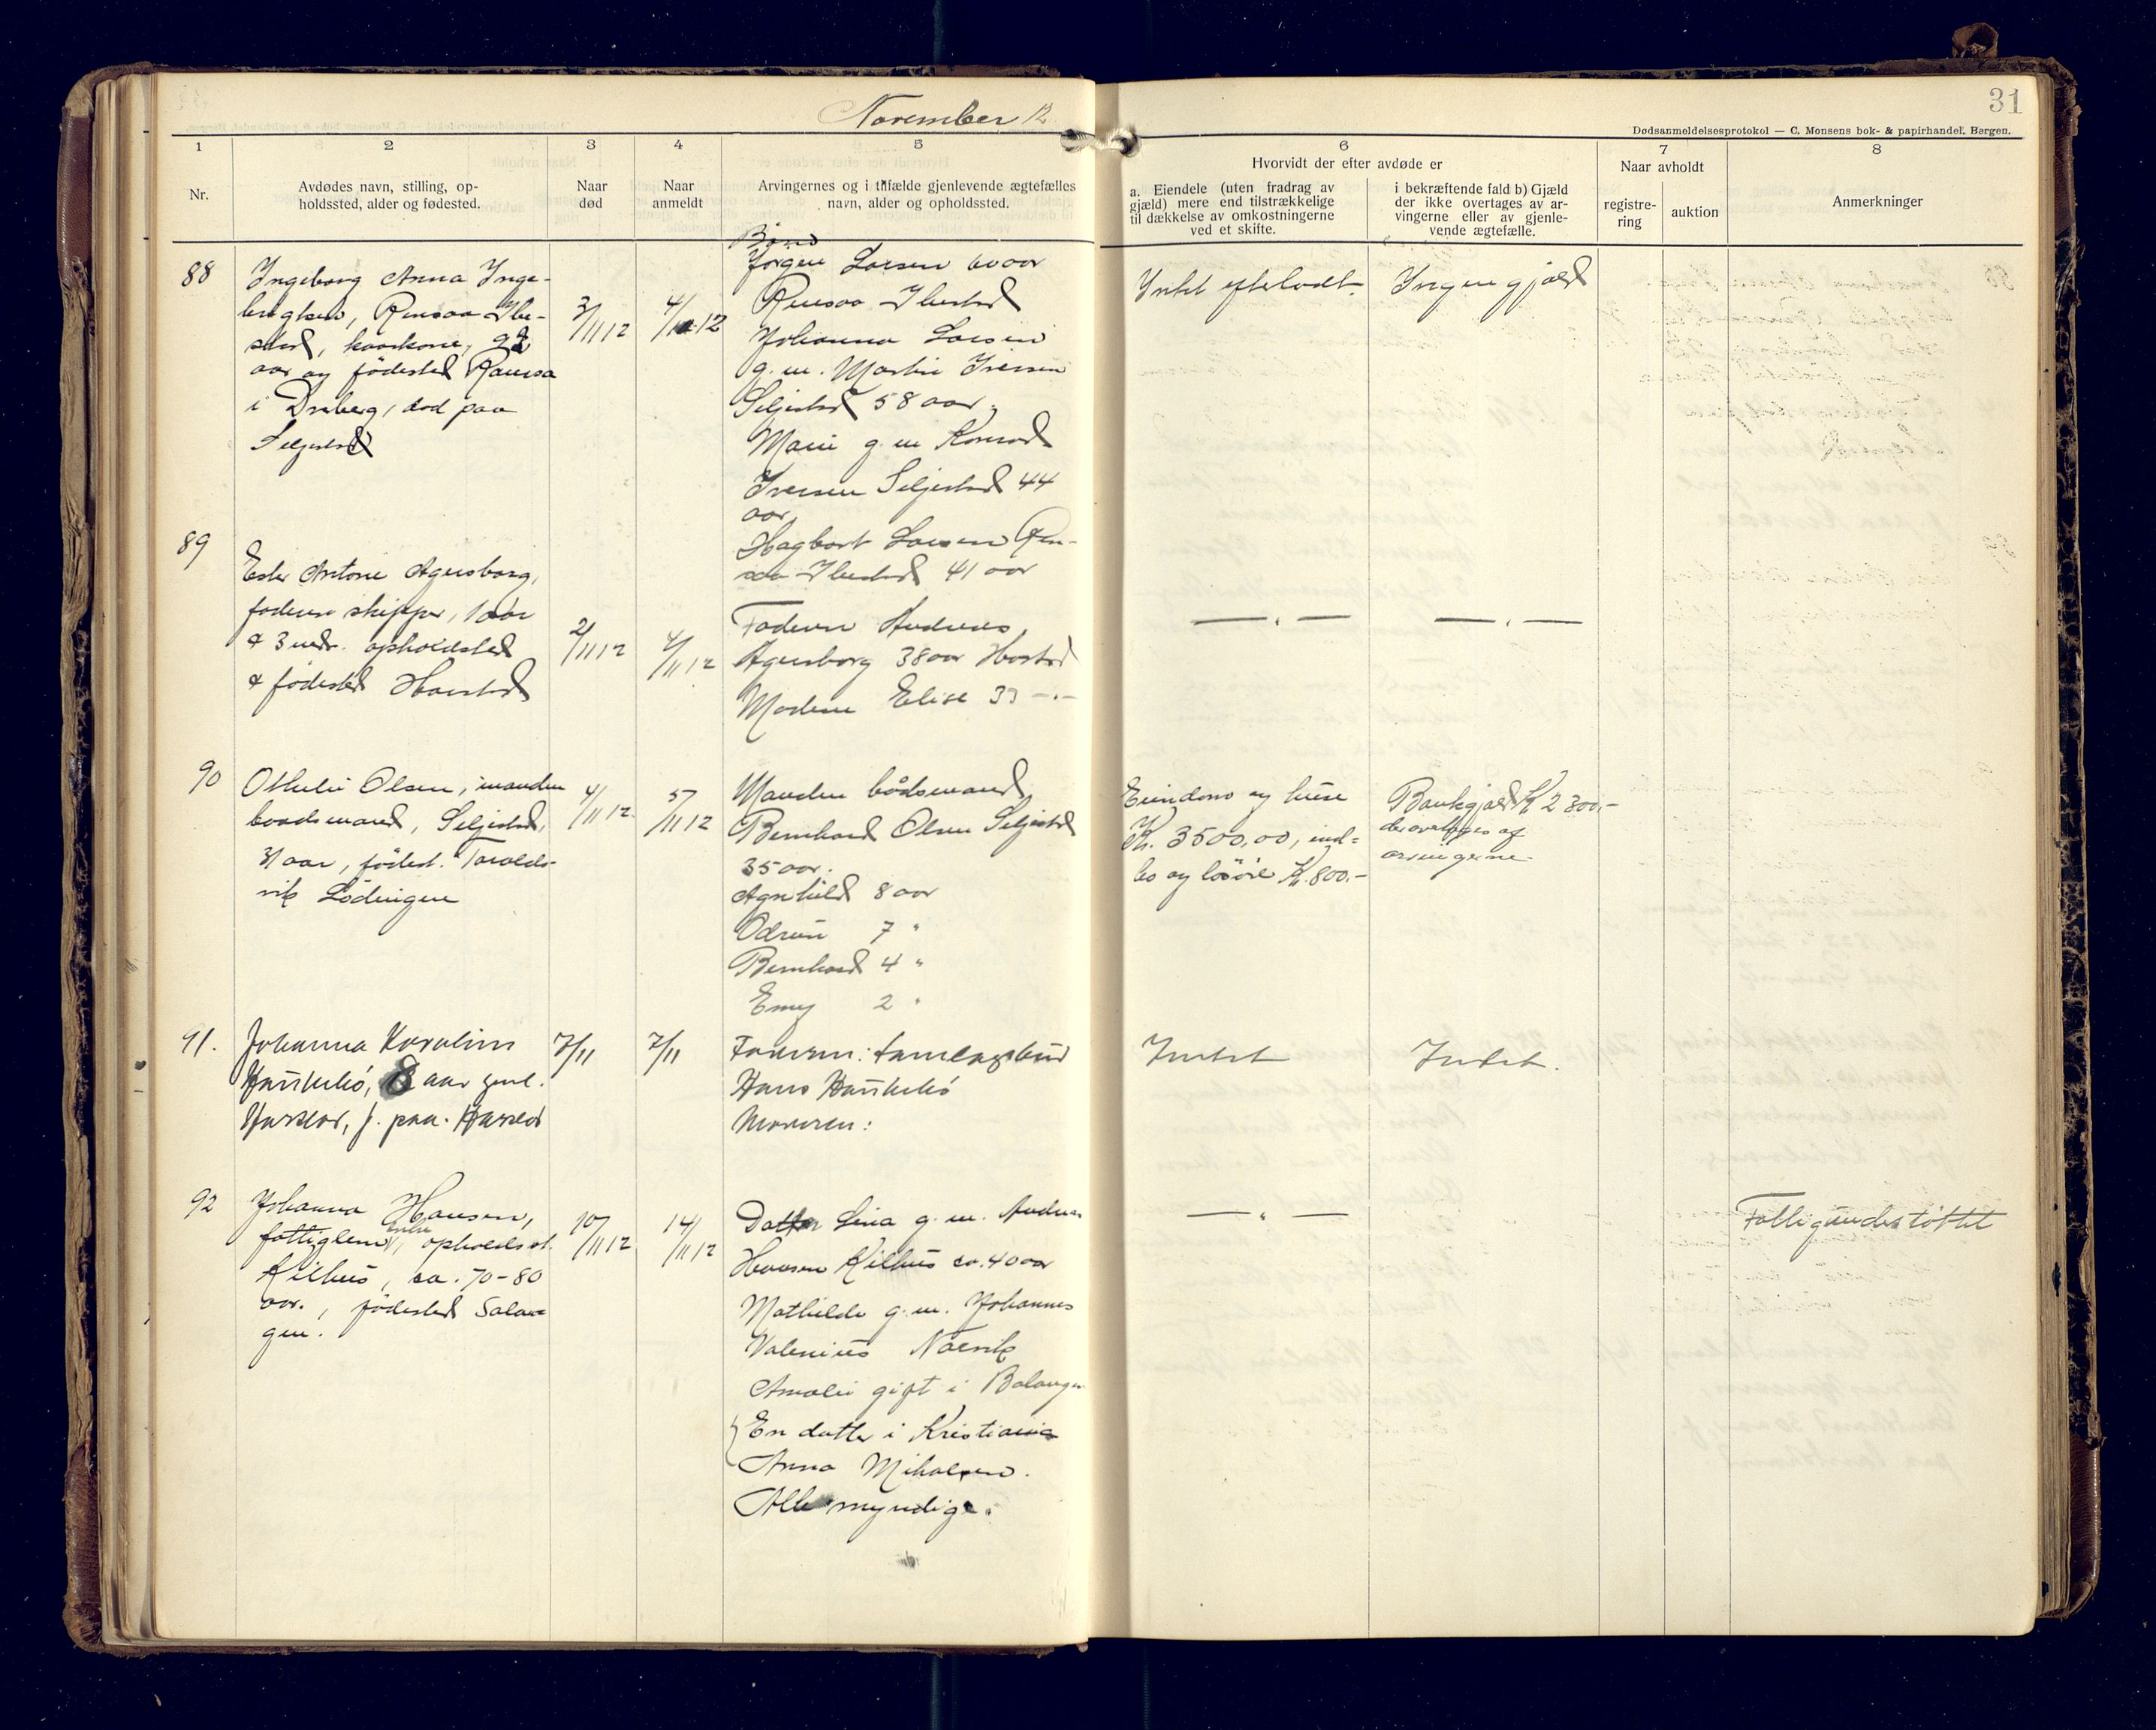 November 12
31
Dødsanmeldelsesprotokol — C. Monsens bok- & papirhandel, Bergen.
1
2
3
4
5
6
7
8
Nr.
Avdødes navn, stilling, op-
holdssted, alder og fødested.
Naar
død
Naar
anmeldt
Arvingernes og i tilfælde gjenlevende ægtefælles
navn, alder og opholdssted.
Hvorvidt der efter avdøde er
a. Eiendele (uten fradrag av
gjæld) mere end tilstrækkelige
til dækkelse av omkostningerne
ved et skifte.
i bekræftende fald b) Gjæld
der ikke overtages av ar-
vingerne eller av gjenle-
vende ægtefælle.
Naar avholdt
registre-
ring
auktion
Anmerkninger
88
Ingeborg Anna Inge-
brigtsen, Rensaa Ibe-
stad, kaarkone, 92
aar og födested Ramsa
i Dverberg, död paa
Seljestad
3/11 12
4/11 12
Börn
Jörgen Larsen 60 aar
Rensaa Ibestad
Johanna Larsen
g. m. Martin Iversen
Seljestad 58 aar.
Marie g. m. Konrad
Iversen Seljestad 44
aar
Hagbart Larsen Ren-
saa Ibestad 41 aar
Intet efterladt.
Ingen gjæld
89
Ester Antonie Agersborg,
faderen skipper, 1 aar
& 3 mdr. opholdsted
& födested Harstad
2/11 12
4/11 12
Faderen Andreas
Agersborg 38 aar Harstad
Moderen Elise 33 —"—
— " —
— " —
90
Othelie Olsen, manden
baadsmand, Seljestad,
31 aar, födest. Taralds-
vik Lödingen
4/11 12
5/11 12
Manden bådsmand
Bernhard Olsen Seljestad
35 aar.
Agnhild 8 aar
Odrun 7 "
Bernhard 4 "
Emy 2 "
Eiendom og huse
Kr. 3500,00, ind-
bo og lösöre Kr. 800.-
Bankgjæld Kr 2300,-
der overtages af
arvingerne.
91.
Johanna Karoline
8 aar gml.
Harstad, f. paa Harstad
7/11
7/11
Faderen: samlagsbud
Hans
Moderen:
Intet
Intet.
92
Johanna Hansen,
fattiglem, enke, opholdsst.
Kilhus, ca. 70-80
aar., födested Salan-
gen.
10/11 12
14/11 12
Datter Lina g. m. Andreas
Hansen Kilhus ca. 40 aar
Mathilde g. m. Johannes
Valenius Narvik
Amalie gift i Balangen
En datter i Kristiania
Anna Mikalsen.
Alle myndige.
— " —
Fattigunderstöttet